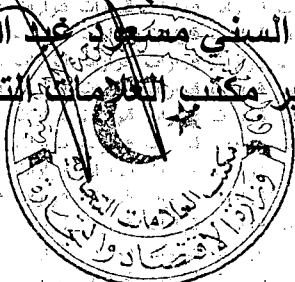 السني مسعود عبد
مدير مكتب العلامات
مكتب العلامات التجارية
وزارة الاقتصاد والتجارة